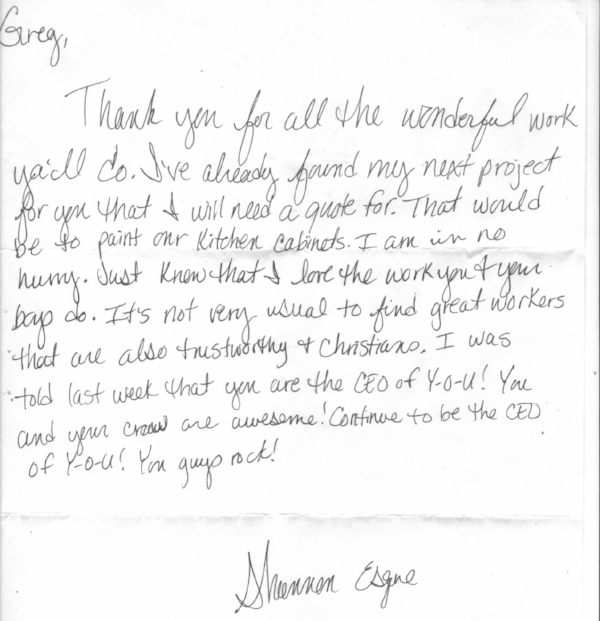 Greg,
Thank you for all the wonderful work
ya'll do. I've already found my next project
for you that I will need a quote for. That would
be to paint our Kitchen cabinets. I am in no
hurry. Just know that I love the work you & your
boys do. It's not very usual to find great workers
that are also trustworthy & Christians. I was
told last week that you are the CEO of Y-O-U! You
and your crew are awesome! Continue to be the CEO
of Y-O-U! You guys rock!
Shannon